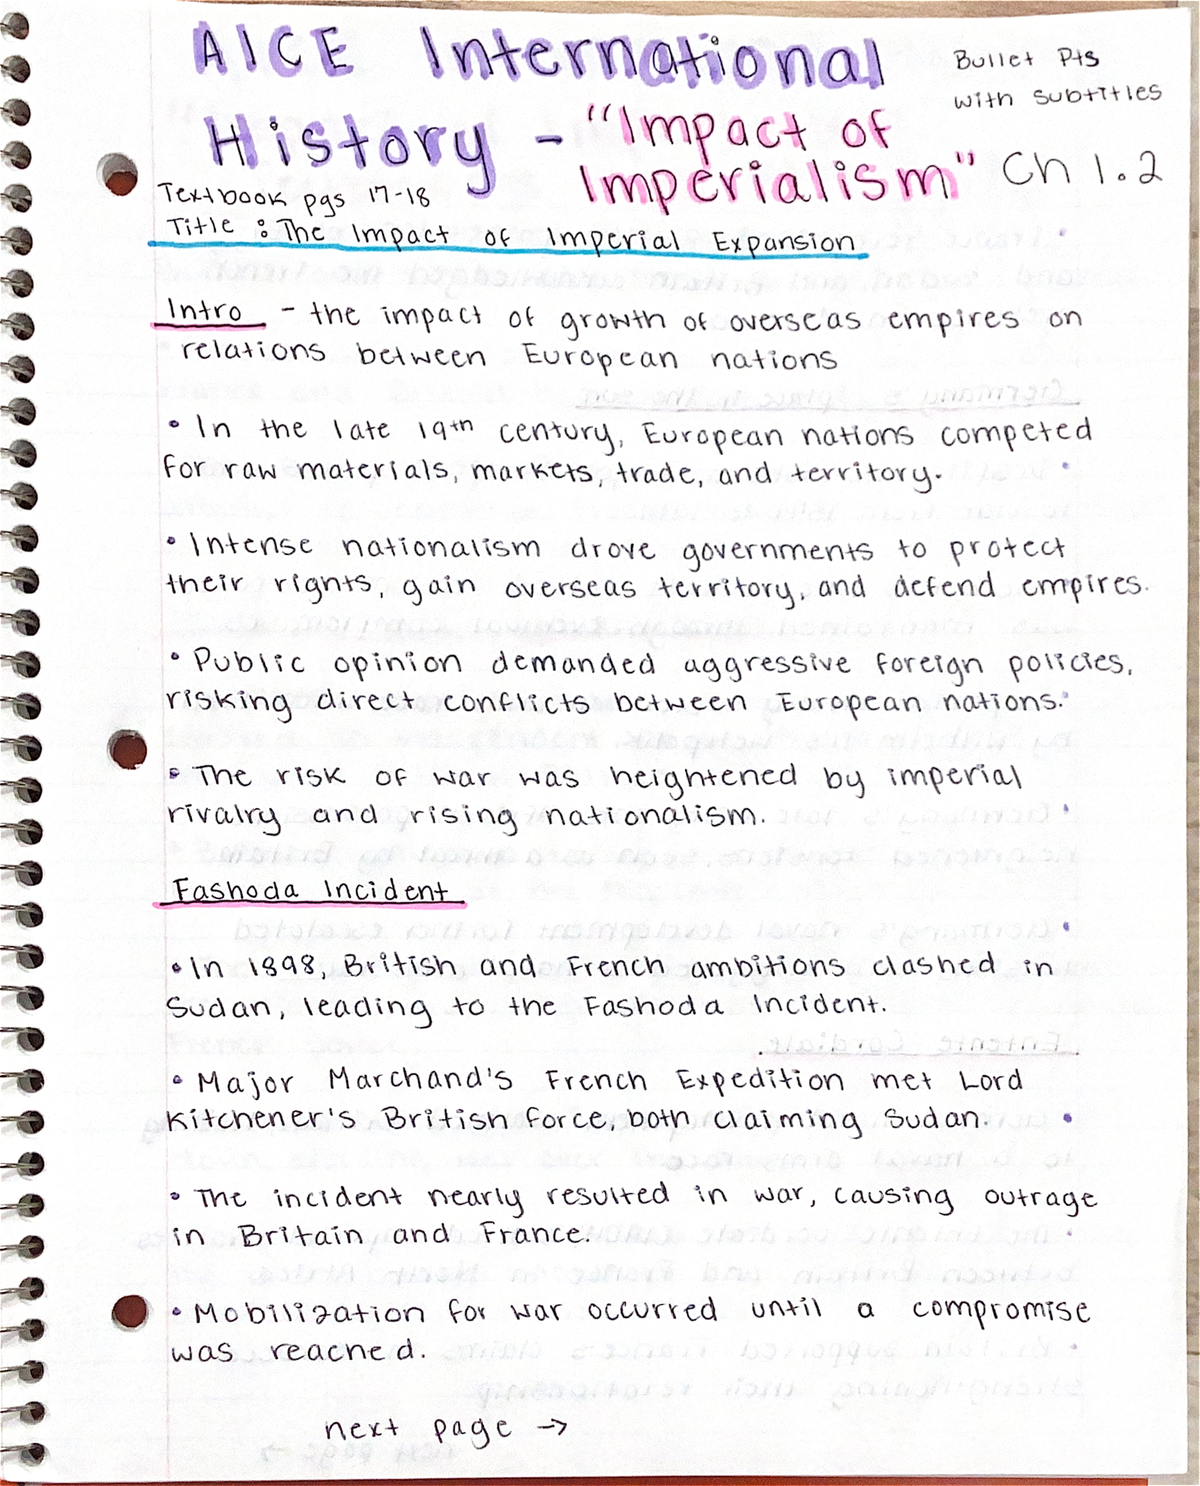 AICE International
Bullet Pts
with subtitles
History - "Impact of
Imperialism" Ch 1.2
Textbook pgs 17-18
Title : The Impact of Imperial Expansion
Intro - the impact of growth of overseas empires on
relations between European nations
• In the late 19th century, European nations competed
for raw materials, markets, trade, and territory.
• Intense nationalism drove governments to protect
their rights, gain overseas territory, and defend empires.
• Public opinion demanded aggressive foreign policies,
risking direct conflicts between European nations.
• The risk of war was heightened by imperial
rivalry and rising nationalism.
Fashoda Incident
• In 1898, British and French ambitions clashed in
Sudan, leading to the Fashoda Incident.
• Major Marchand's French Expedition met Lord
Kitchener's British force, both claiming Sudan.
• The incident nearly resulted in war, causing outrage
in Britain and France.
• Mobilization for war occurred until a compromise
was reached.
next page →